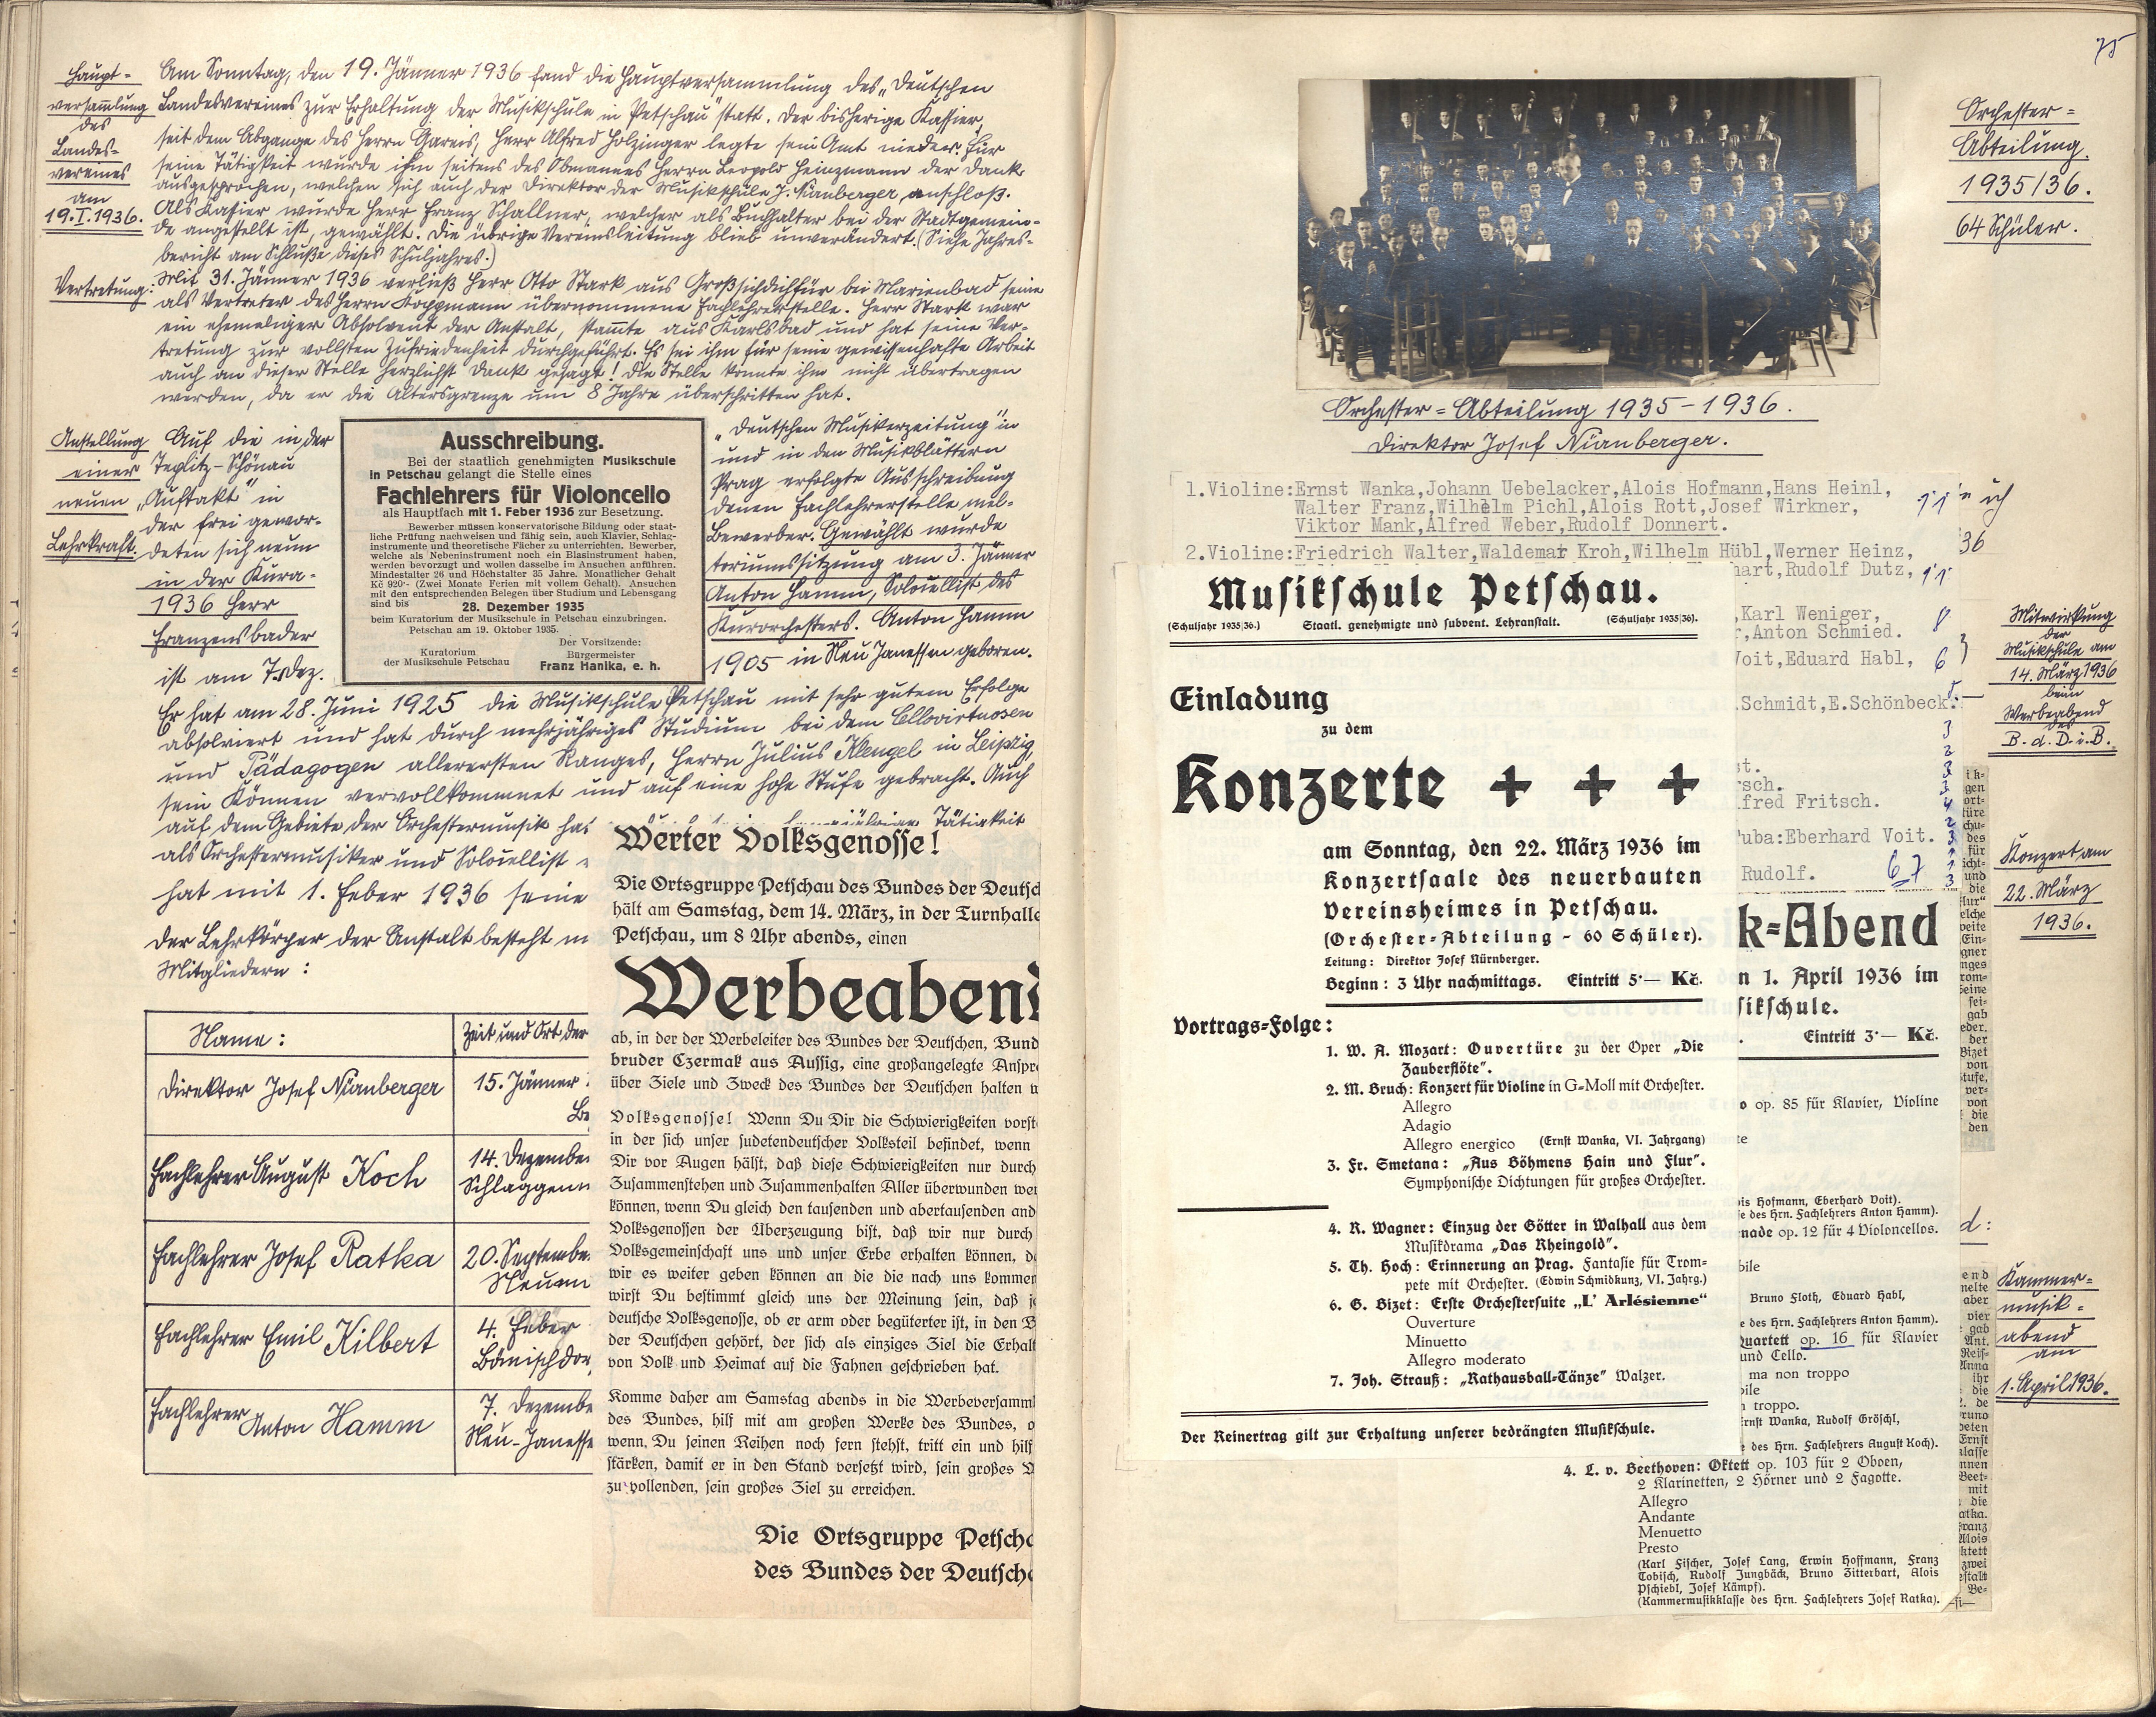 Haupt-
versammlung
des
Landes-
vereines
am
19.I.1936.
Am Sonntag, den 19. Jänner 1936 fand die Hauptversammlung des „Deutschen
Landesvereines zur Erhaltung der Musikschule in Petschau" statt. Der bisherige Kassier,
seit dem Abgange des Herrn Gareis, Herr Alfred Holzinger legte sein Amt nieder. Für
seine Tätigkeit wurde ihm seitens des Obmannes Herrn Leopold Heinzmann der Dank
ausgesprochen, welchen sich auch der Direktor der Musikschule J. Nürnberger anschloß.
Als Kassier wurde Herr Franz Schallner, welcher als Buchhalter bei der Stadtgemein-
de angestellt ist, gewählt. Die übrige Vereinsleitung blieb unverändert. (Siehe Jahres-
bericht am Schluße dieses Schuljahres.)
Vertretung:
Mit 31. Jänner 1936 verließ Herr Otto Stark aus Großsichdichfür bei Marienbad seine
als Vertreter des Herrn Koppmann übernommene Fachlehrerstelle. Herr Stark war
ein ehemaliger Absolvent der Anstalt, stammte aus Karlsbad und hat seine Ver-
tretung zur vollsten Zufriedenheit durchgeführt. Es sei ihm für seine gewissenhafte Arbeit
auch an dieser Stelle herzlichst Dank gesagt! Die Stelle konnte ihm nicht übertragen
werden, da er die Altersgrenze um 8 Jahre überschritten hat.
Anstellung
einer
neuen
Lehrkraft.
Auf die in der
Teplitz-Schönau
„Auftakt" in
der frei gewor-
deten sich neun
in der Kura-
1936 Herr
Franzensbader
ist am 7. Dez.
Ausschreibung.
Bei der staatlich genehmigten Musikschule
in Petschau gelangt die Stelle eines
Fachlehrers für Violoncello
als Hauptfach mit 1. Feber 1936 zur Besetzung.
Bewerber müssen konservatorische Bildung oder staat-
liche Prüfung nachweisen und fähig sein, auch Klavier, Schlag-
instrumente und theoretische Fächer zu unterrichten. Bewerber,
welche als Nebeninstrument noch ein Blasinstrument haben,
werden bevorzugt und wollen dasselbe im Ansuchen anführen.
Mindestalter 26 und Höchstalter 35 Jahre. Monatlicher Gehalt
Kč 920·- (Zwei Monate Ferien mit vollem Gehalt). Ansuchen
mit den entsprechenden Belegen über Studium und Lebensgang
sind bis
28. Dezember 1935
beim Kuratorium der Musikschule in Petschau einzubringen.
Petschau am 19. Oktober 1935.
Kuratorium
der Musikschule Petschau
Der Vorsitzende:
Bürgermeister
Franz Hanika, e. h.
„Deutschen Musikerzeitung" in
und in den Musikblättern
Prag erfolgte Ausschreibung
denen Fachlehrerstelle mel-
Bewerber. Gewählt wurde
toriumssitzung am 3. Jänner
Anton Hamm, Solocellist des
Kurorchesters. Anton Hamm
1905 in Neu Janessen geboren.
Er hat am 28. Juni 1925 die Musikschule Petschau mit sehr gutem Erfolge
absolviert und hat durch mehrjähriges Studium bei dem Cellovirtuosen
und Pädagogen allerersten Ranges, Herrn Julius Klengel in Leipzig,
sein Können vervollkommnet und auf eine hohe Stufe gebracht. Auch
auf dem Gebiete der Orchestermusik ha
Tätigkeit
als Orchestermusiker und Solocellist
hat mit 1. Feber 1936 seine
Der Lehrkörper der Anstalt besteht
Mitgliedern:
Name:
Zeit und Ort der
Direktor Josef Nürnberger
15. Jänner
Fachlehrer August Koch
14. Dezembe
Schlaggen
Fachlehrer Josef Ratka
20. Septembe
Neu
Fachlehrer Emil Kilbert
4. Feber
Böhmischdor
Fachlehrer Anton Hamm
7. Dezembe
Neu-Janesse
Werter Volksgenosse!
Die Ortsgruppe Petschau des Bundes der Deutsc
hält am Samstag, dem 14. März, in der Turnhalle
Petschau, um 8 Uhr abends, einen
Werbeaben
ab, in der der Werbeleiter des Bundes der Deutschen, Bund
bruder Czermak aus Aussig, eine großangelegte Anspr
über Ziele und Zweck des Bundes der Deutschen halten
Volksgenosse! Wenn Du Dir die Schwierigkeiten vorst
in der sich unser sudetendeutscher Volksteil befindet, wenn
Dir vor Augen hälst, daß diese Schwierigkeiten nur durch
Zusammenstehen und Zusammenhalten Aller überwunden we
können, wenn Du gleich den tausenden und abertausenden and
Volksgenossen der Überzeugung bist, daß wir nur durch
Volksgemeinschaft uns und unser Erbe erhalten können, d
wir es weiter geben können an die die nach uns kommen
wirst Du bestimmt gleich uns der Meinung sein, daß j
deutsche Volksgenosse, ob er arm oder begüterter ist, in den B
der Deutschen gehört, der sich als einziges Ziel die Erhalt
von Volk und Heimat auf die Fahnen geschrieben hat.
Komme daher am Samstag abends in die Werbeversamml
des Bundes, hilf mit am großen Werke des Bundes, o
wenn, Du seinen Reihen noch fern stehst, tritt ein und hilf
stärken, damit er in den Stand versetzt wird, sein großes
zu vollenden, sein großes Ziel zu erreichen.
Die Ortsgruppe Petscha
des Bundes der Deutsche
75
Orchester-
Abteilung.
1935/36.
64 Schüler.
Orchester-Abteilung 1935-1936.
Direktor Josef Nürnberger.
1.Violine:Ernst Wanka,Johann Uebelacker,Alois Hofmann,Hans Heinl,
Walter Franz,Wilhelm Pichl,Alois Rott,Josef Wirkner, 11
Viktor Mank,Alfred Weber,Rudolf Donnert.
2.Violine:Friedrich Walter,Waldemar Kroh,Wilhelm Hübl,Werner Heinz,
hart,Rudolf Dutz, 11
,Karl Weniger,
,Anton Schmied. 8
Voit,Eduard Habl, 6
.Schmidt,E.Schönbeck.
st.
rsch.
lfred Fritsch.
Tuba:Eberhard Voit.
Rudolf. 67
ich
36
Musikschule Petschau.
(Schuljahr 1935|36.) Staatl. genehmigte und subvent. Lehranstalt. (Schuljahr 1935|36).
Einladung
zu dem
Konzerte + + +
am Sonntag, den 22. März 1936 im
Konzertsaale des neuerbauten
Vereinsheimes in Petschau.
(Orchester-Abteilung - 60 Schüler).
Leitung: Direktor Josef Nürnberger.
Beginn: 3 Uhr nachmittags. Eintritt 5·— Kč.
Vortrags-Folge:
1. W. A. Mozart: Ouvertüre zu der Oper „Die
Zauberflöte".
2. M. Bruch: Konzert für Violine in G-Moll mit Orchester.
Allegro
Adagio
Allegro energico (Ernst Wanka, VI. Jahrgang)
3. Fr. Smetana: „Aus Böhmens Hain und Flur".
Symphonische Dichtungen für großes Orchester.
4. R. Wagner: Einzug der Götter in Walhall aus dem
Musikdrama „Das Rheingold".
5. Th. Hoch: Erinnerung an Prag. Fantasie für Trom-
pete mit Orchester. (Edwin Schmidkunz, VI. Jahrg.)
6. G. Bizet: Erste Orchestersuite „L' Arlésienne"
Ouverture
Minuetto
Allegro moderato
7. Joh. Strauß: „Rathausball-Tänze" Walzer.
Der Reinertrag gilt zur Erhaltung unserer bedrängten Musikschule.
k-Abend
n 1. April 1936 im
sikschule.
Eintritt 3·— Kč.
o op. 85 für Klavier, Violine
ois Hofmann, Eberhard Voit).
e des Hrn. Fachlehrers Anton Hamm).
nade op. 12 für 4 Violoncellos.
bile
Bruno Floth, Eduard Habl,
e des Hrn. Fachlehrers Anton Hamm).
Quartett op. 16 für Klavier
und Cello.
ma non troppo
bile
troppo.
Ernst Wanka, Rudolf Gröschl,
e des Hrn. Fachlehrers August Koch).
4. L. v. Beethoven: Oktett op. 103 für 2 Oboen,
2 Klarinetten, 2 Hörner und 2 Fagotte.
Allegro
Andante
Menuetto
Presto
(Karl Fischer, Josef Lang, Erwin Hoffmann, Franz
Tobisch, Rudolf Jungbäck, Bruno Zitterbart, Alois
Pschiebl, Josef Kämpf).
(Kammermusikklasse des Hrn. Fachlehrers Josef Ratka).
Mitwirkung
der
Musikschule am
14. März 1936
beim
Werbeabend
des
B. d. D. i. B.
Konzert am
22. März
1936.
Kammer-
musik-
abend
am
1. April 1936.